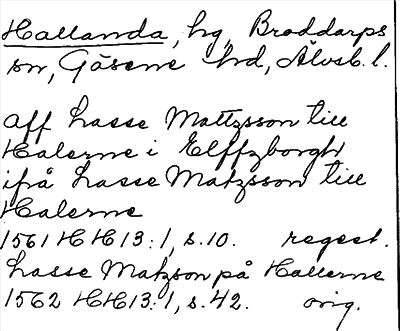 Hallanda, hg, Broddarps
sn, Gäsene hd, Älvsb. l.
aff Lasse Mattzsson till
Halerne i Elffzborgh
ifrå Lasse Matzsson till
Halerne
1561 HH13:1, s.10. regest.
Lasse Matzson på Hallerne
1562 HH13:1, s.42. orig.